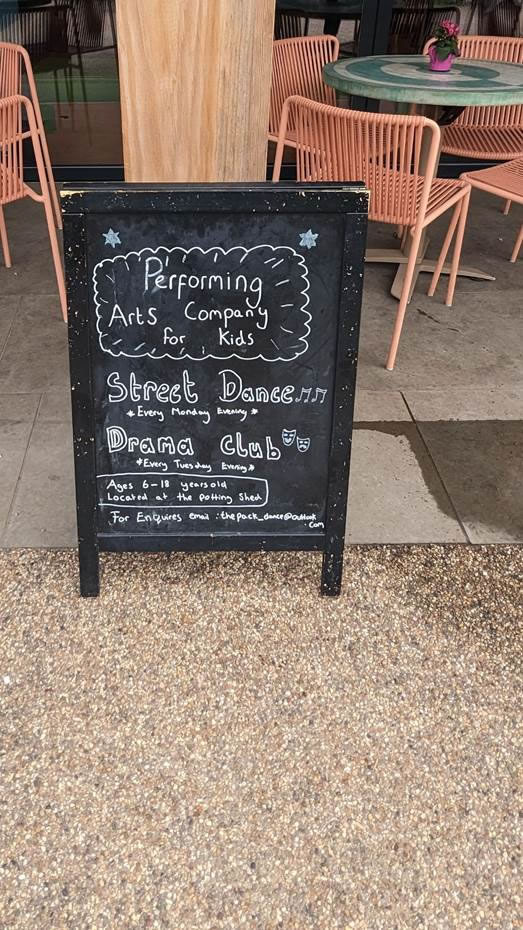 Performing
Arts Company
for Kids
Street Dance
*Every Monday Evening *
Drama Club
*Every Tuesday Evening*
Ages 6-18 years old
Located at the Potting Shed
For Enquires email : the pack_dance@outlook
.com